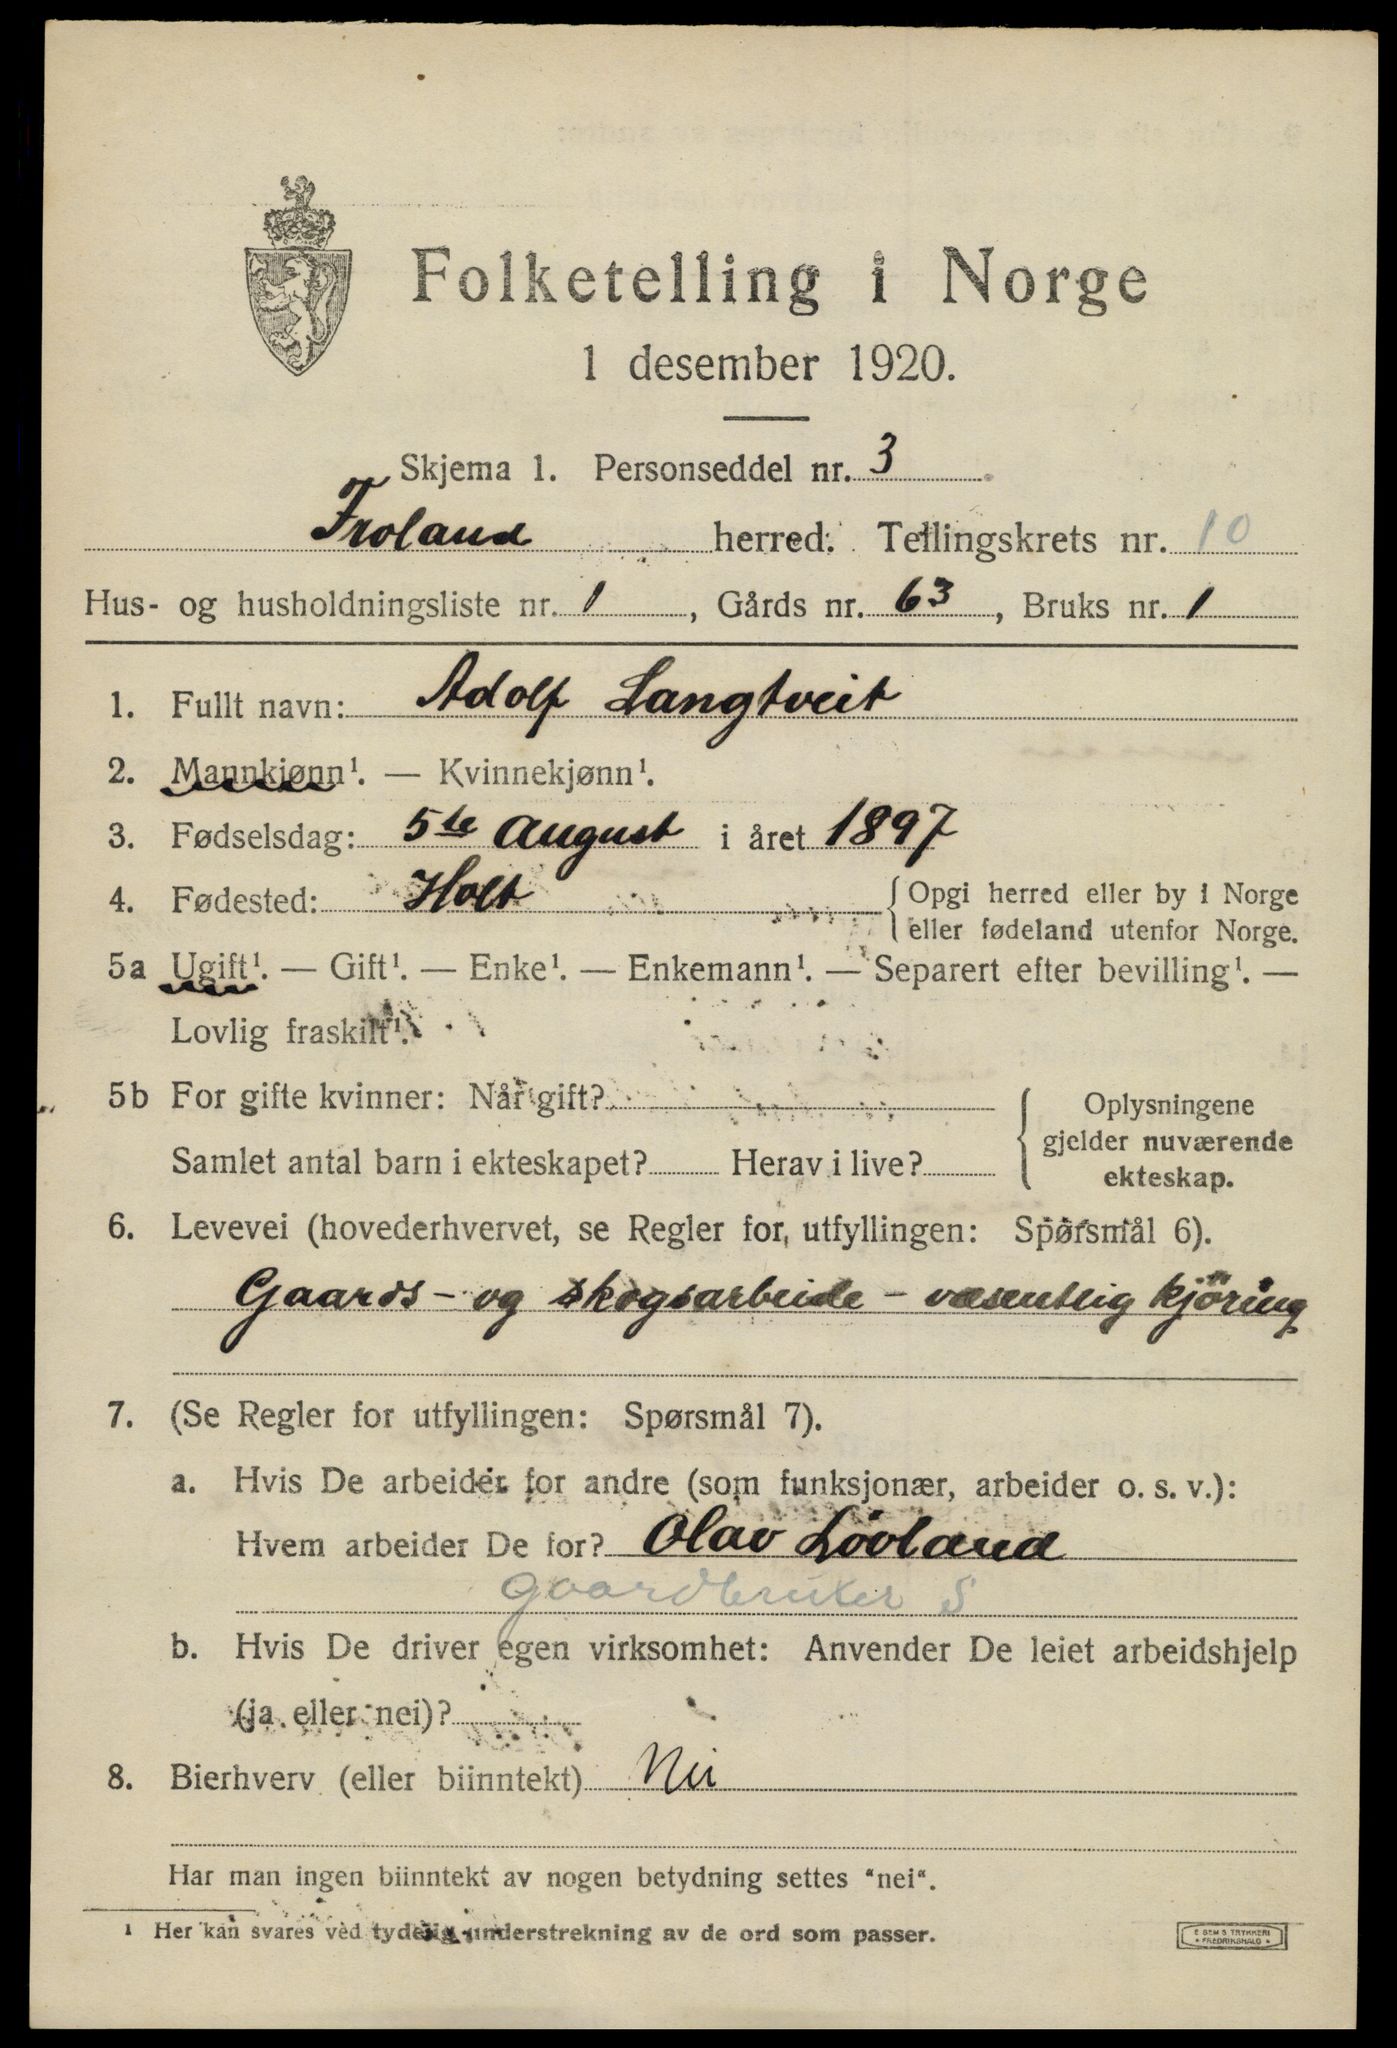 Folketelling i Norge
1 desember 1920.
Skjema 1. Personseddel nr. 3
Froland herred. Tellingskrets nr. 10
Hus- og husholdningsliste nr. 1, Gårds nr. 63, Bruks nr. 1
1. Fullt navn: Adolf Langtveit
2. Mannkjønn¹. — Kvinnekjønn¹.
3. Fødselsdag: 5te August i året 1897
4. Fødested: Holt { Opgi herred eller by i Norge
eller fødeland utenfor Norge.
5a Ugift¹. — Gift¹. — Enke¹. — Enkemann¹. — Separert efter bevilling¹. —
Lovlig fraskilt¹.
5b For gifte kvinner: Når gift?
Samlet antal barn i ekteskapet? Herav i live?
{ Oplysningene
gjelder nuværende
ekteskap.
6. Levevei (hovederhvervet, se Regler for utfyllingen: Spørsmål 6).
Gaards- og skogsarbeide - væsentlig kjöring
7. (Se Regler for utfyllingen: Spørsmål 7).
a. Hvis De arbeider for andre (som funksjonær, arbeider o. s. v.):
Hvem arbeider De for? Olav Lövland
gaardbruker S
b. Hvis De driver egen virksomhet: Anvender De leiet arbeidshjelp
(ja eller nei)?
8. Bierhverv (eller biinntekt) Nei
Har man ingen biinntekt av nogen betydning settes "nei".
¹ Her kan svares ved tydelig understrekning av de ord som passer.
E. SEM'S TRYKKERI
* FREDRIKSHALD *